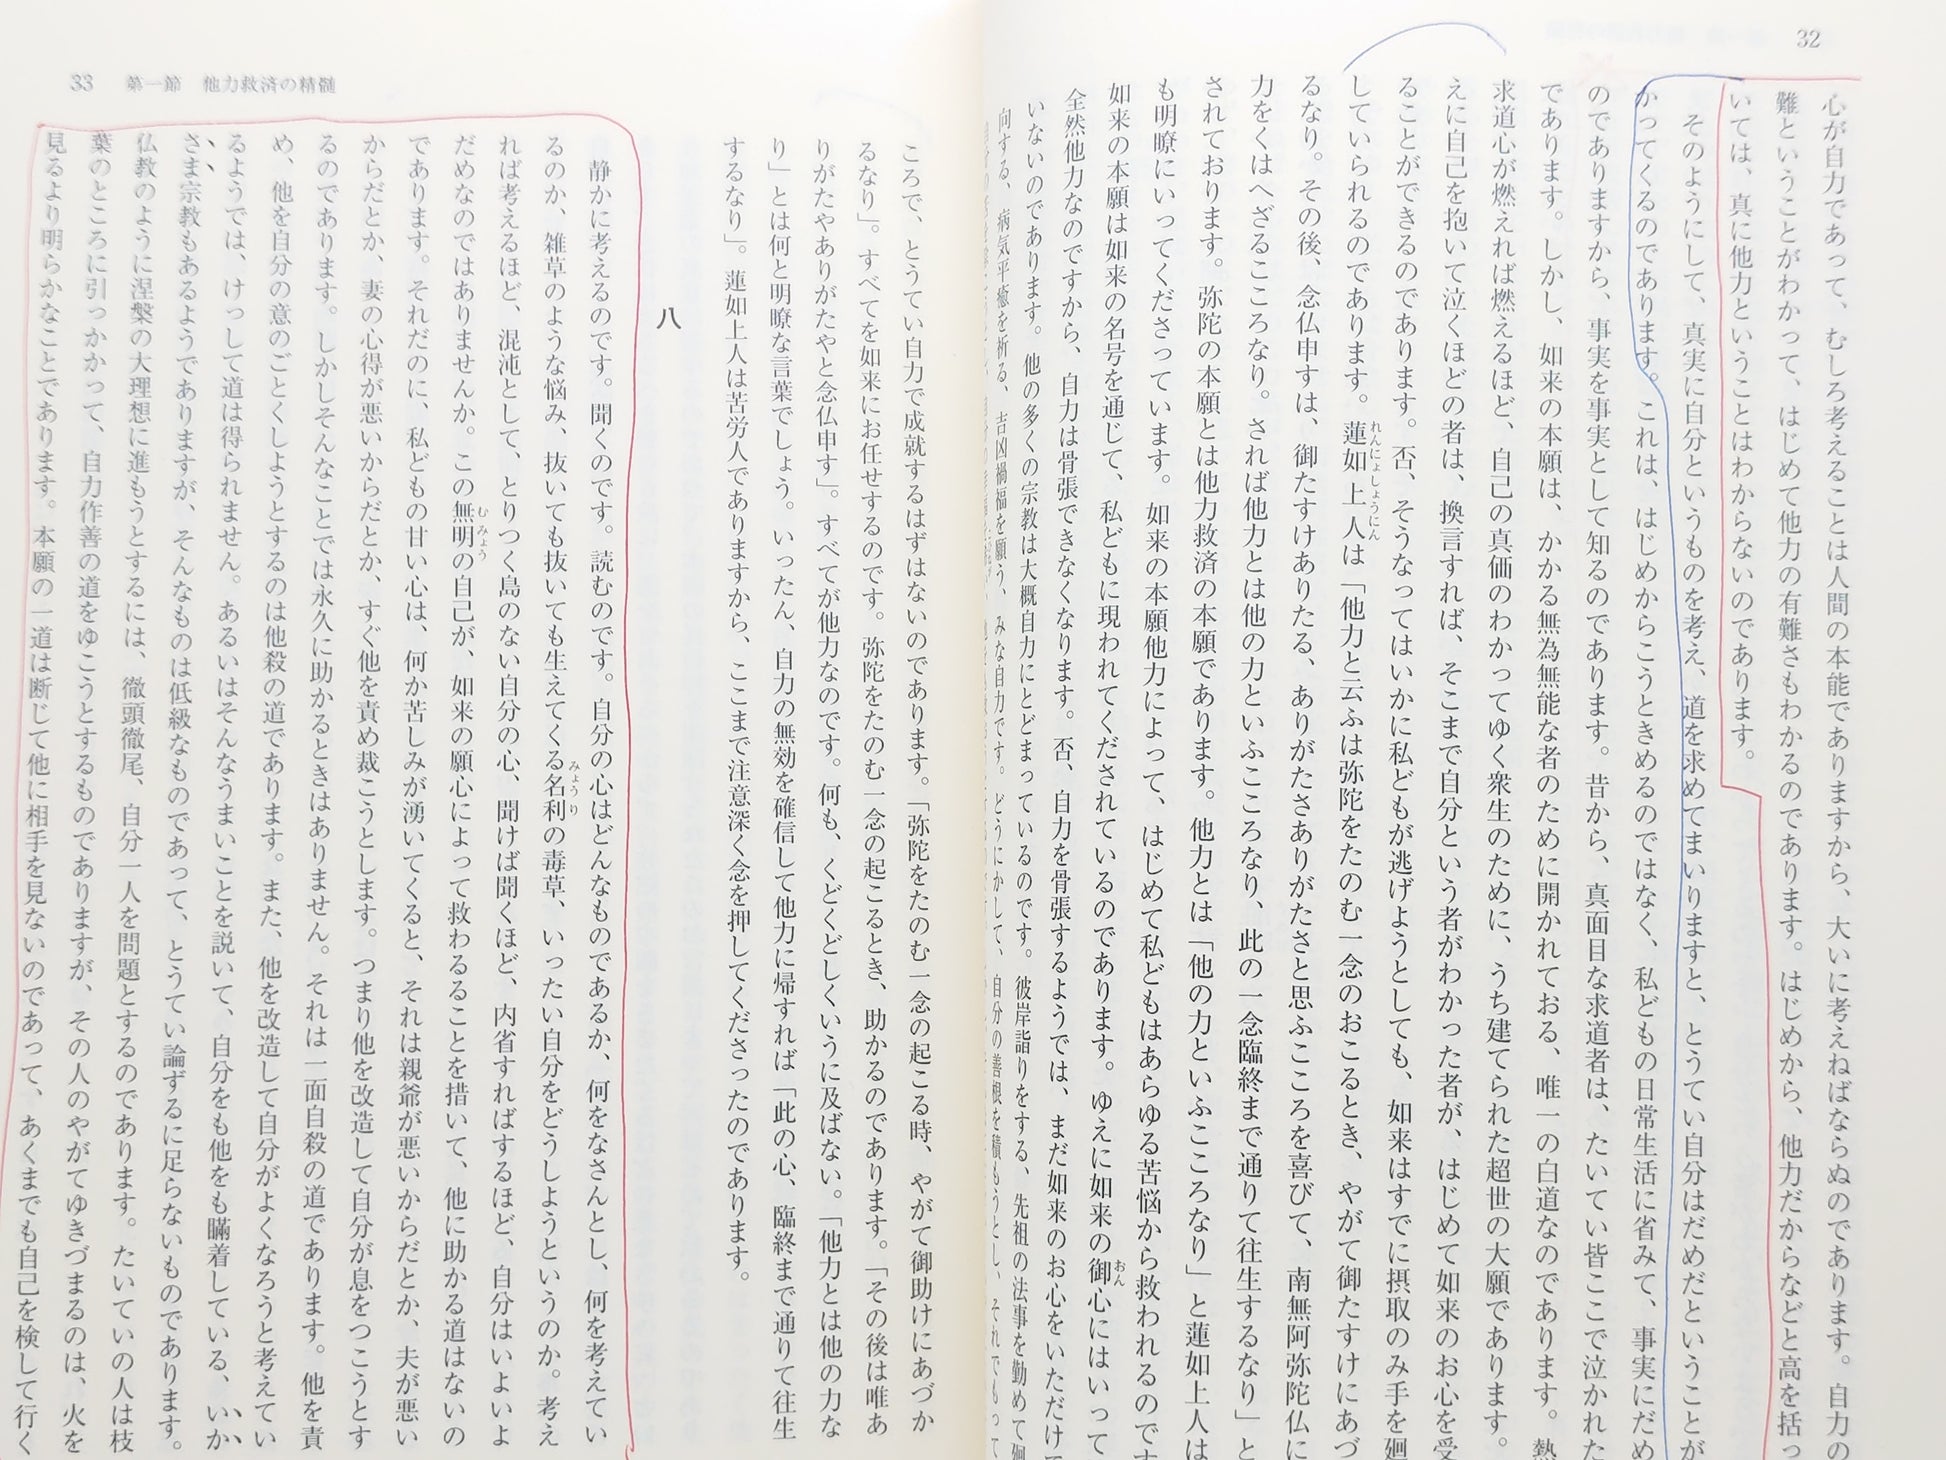 32
心が自力であって、むしろ考えることは人間の本能でありますから、大いに考えねばならぬのであります。自力の
難ということがわかって、はじめて他力の有難さもわかるのであります。はじめから、他力だからなどと高を括っ
いては、真に他力ということはわからないのであります。
そのようにして、真実に自分というものを考え、道を求めてまいりますと、とうてい自分はだめだということが
かってくるのであります。これは、はじめからこうときめるのではなく、私どもの日常生活に省みて、事実にだめ
のでありますから、事実を事実として知るのであります。昔から、真面目な求道者は、たいてい皆ここで泣かれた
であります。しかし、如来の本願は、かかる無為無能な者のために開かれておる、唯一の白道なのであります。熱
求道心が燃えれば燃えるほど、自己の真価のわかってゆく衆生のために、うち建てられた超世の大願であります。
えに自己を抱いて泣くほどの者は、換言すれば、そこまで自分という者がわかった者が、はじめて如来のお心を受
ることができるのであります。否、そうなってはいかに私どもが逃げようとしても、如来はすでに摂取のみ手を廻
していられるのであります。蓮如上人は「他力と云ふは弥陀をたのむ一念のおこるとき、やがて御たすけにあづ
れんにょしょうにん
るなり。その後、念仏申すは、御たすけありたる、ありがたさありがたさと思ふこころを喜びて、南無阿弥陀仏に
力をくはへざるこころなり。されば他力とは他の力といふこころなり、此の一念臨終まで通りて往生するなり」と
されております。弥陀の本願とは他力救済の本願であります。他力とは「他の力といふこころなり」と蓮如上人は
も明瞭にいってくださっています。如来の本願他力によって、はじめて私どもはあらゆる苦悩から救われるのです
如来の本願は如来の名号を通じて、私どもに現われてくだされているのであります。ゆえに如来の御心にはいって
おん
全然他力なのですから、自力は骨張できなくなります。否、自力を骨張するようでは、まだ如来のお心をいただけて
いないのであります。他の多くの宗教は大概自力にとどまっているのです。どうにかして、自分の善根を積もうとし、それでもって
向する、病気平癒を祈る、吉凶禍福を願う、みな自力です。彼岸詣りをする、先祖の法事を勤めて廻
33 第一節 他力救済の精髄
ころで、とうてい自力で成就するはずはないのであります。「弥陀をたのむ一念の起こる時、やがて御助けにあづか
るなり」。すべてを如来にお任せするのです。弥陀をたのむ一念の起こるとき、助かるのであります。「その後は唯あ
りがたやありがたやと念仏申す」。すべてが他力なのです。何も、くどくどしくいうに及ばない。「他力とは他の力な
り」とは何と明瞭な言葉でしょう。いったん、自力の無効を確信して他力に帰すれば「此の心、臨終まで通りて往生
するなり」。蓮如上人は苦労人でありますから、ここまで注意深く念を押してくださったのであります。
八
静かに考えるのです。聞くのです。読むのです。自分の心はどんなものであるか、何をなさんとし、何を考えてい
るのか、雑草のような悩み、抜いても抜いても生えてくる名利の毒草、いったい自分をどうしようというのか。考え
みょうり
れば考えるほど、混沌として、とりつく島のない自分の心、聞けば聞くほど、内省すればするほど、自分はいよいよ
だめなのではありませんか。この無明の自己が、如来の願心によって救わるることを措いて、他に助かる道はないの
むみょう
であります。それだのに、私どもの甘い心は、何か苦しみが湧いてくると、それは親爺が悪いからだとか、夫が悪い
からだとか、妻の心得が悪いからだとか、すぐ他を責め裁こうとします。つまり他を改造して自分が息をつこうとす
るのであります。しかしそんなことでは永久に助かるときはありません。それは一面自殺の道であります。他を責
め、他を自分の意のごとくしようとするのは他殺の道であります。また、他を改造して自分がよくなろうと考えてい
るようでは、けっして道は得られません。あるいはそんなうまいことを説いて、自分をも他をも瞞着している、いか
さま宗教もあるようでありますが、そんなものは低級なものであって、とうてい論ずるに足らないものであります。
仏教のように涅槃の大理想に進もうとするには、徹頭徹尾、自分一人を問題とするのであります。たいていの人は枝
葉のところに引っかかって、自力作善の道をゆこうとするものでありますが、その人のやがてゆきづまるのは、火を
見るより明らかなことであります。本願の一道は断じて他に相手を見ないのであって、あくまでも自己を検して行く